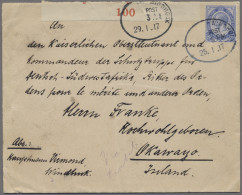 100
29.1.17
29.1.17
An
den Kaiserlichen Oberstleutnant und
Kommandeur der Schutztruppe für
Deutsch-Südwestafrika, Ritter des Or-
dens pour le mérite und anderer Orden,
Herrn Franke,
Hochwohlgeboren.
Okawayo
Inland.
Abs:
Windhuk.